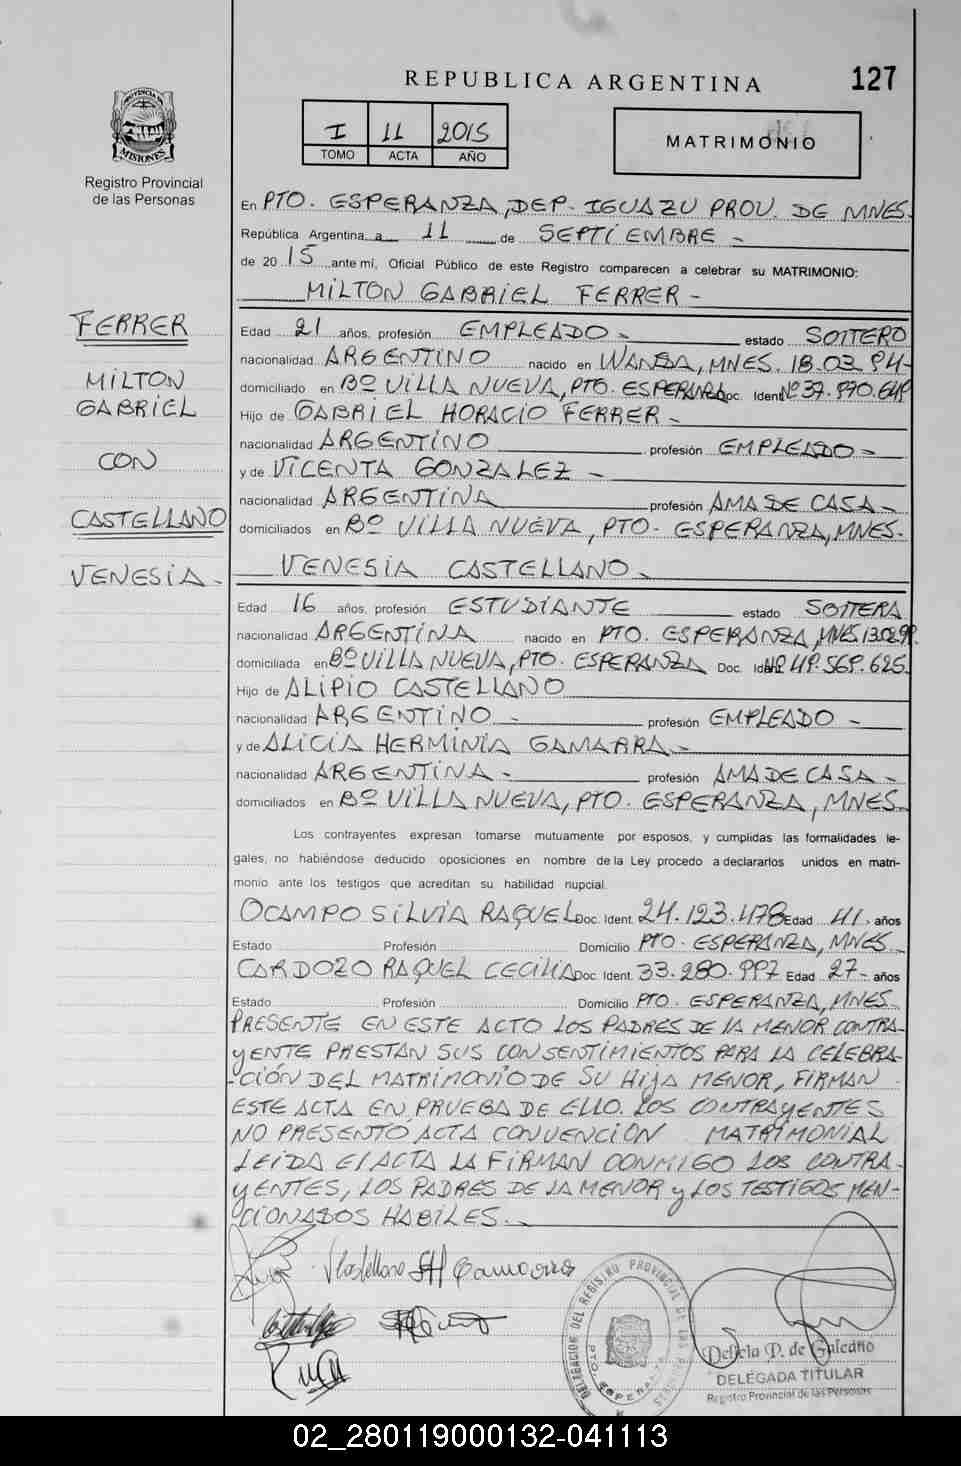 REPUBLICA ARGENTINA 127
PROVINCIA DE
MISIONES
Registro Provincial
de las Personas
I 11 2015
TOMO ACTA AÑO
MATRIMONIO
En PTO. ESPERANZA, DEP. IGUAZU PROV. DE MNES.
República Argentina a 11 de SEPTIEMBRE -
de 20 15 ante mí, Oficial Público de este Registro comparecen a celebrar su MATRIMONIO:
MILTON GABRIEL FERRER -
FERRER
MILTON
GABRIEL
CON
CASTELLANO
VENESIA -
Edad 21 años, profesión EMPLEADO - estado SOLTERO
nacionalidad ARGENTINO nacido en WANDA, MNES. 18.03.94-
domiciliado en Bº VILLA NUEVA, PTO. ESPERANZA Doc. Ident. Nº 37.970.649
Hijo de GABRIEL HORACIO FERRER -
nacionalidad ARGENTINO profesión EMPLEADO -
y de VICENTA GONZALEZ -
nacionalidad ARGENTINA profesión AMA DE CASA -
domiciliados en Bº VILLA NUEVA, PTO. ESPERANZA, MNES.
VENESIA CASTELLANO -
Edad 16 años, profesión ESTUDIANTE estado SOLTERA
nacionalidad ARGENTINA nacido en PTO. ESPERANZA, MNES. 13.02.99.
domiciliada en Bº VILLA NUEVA, PTO. ESPERANZA Doc. Ident. Nº 49.569.625.
Hijo de ALIPIO CASTELLANO
nacionalidad ARGENTINO - profesión EMPLEADO -
y de ALICIA HERMINIA GAMARRA -
nacionalidad ARGENTINA - profesión AMA DE CASA -
domiciliados en Bº VILLA NUEVA, PTO. ESPERANZA, MNES.
Los contrayentes expresan tomarse mutuamente por esposos, y cumplidas las formalidades le-
gales, no habiéndose deducido oposiciones en nombre de la Ley procedo a declararlos unidos en matri-
monio ante los testigos que acreditan su habilidad nupcial.
OCAMPO SILVIA RAQUEL Doc. Ident. 24.123.478 Edad 41. años
Estado Profesión Domicilio PTO. ESPERANZA, MNES.
CARDOZO RAQUEL CECILIA Doc. Ident. 33.280.997 Edad 27- años
Estado Profesión Domicilio PTO. ESPERANZA, MNES.
PRESENTE EN ESTE ACTO LOS PADRES DE LA MENOR CONTRA-
yENTE PRESTAN SUS CONSENTIMIENTOS PARA LA CELEBRA-
-CIÓN DEL MATRIMONIO DE SU HIJA MENOR, FIRMAN
ESTE ACTA EN PRUEBA DE ELLO. LOS CONTRAyENTES
NO PRESENTÓ ACTA CONVENCION MATRIMONIAL
LEIDA El ACTA LA FIRMAN CONMIGO LOS CONTRA-
yENTES, LOS PADRES DE LA MENOR y LOS TESTIGOS MEN-
CIONADOS HABILES.-
VCastellano AH Gamarra
DELEGACION DEL REGISTRO PROVINCIAL DE LAS PERSONAS
PTO. ESPERANZA
Delicia P. de Galeano
DELEGADA TITULAR
Registro Provincial de las Personas
02_280119000132-041113